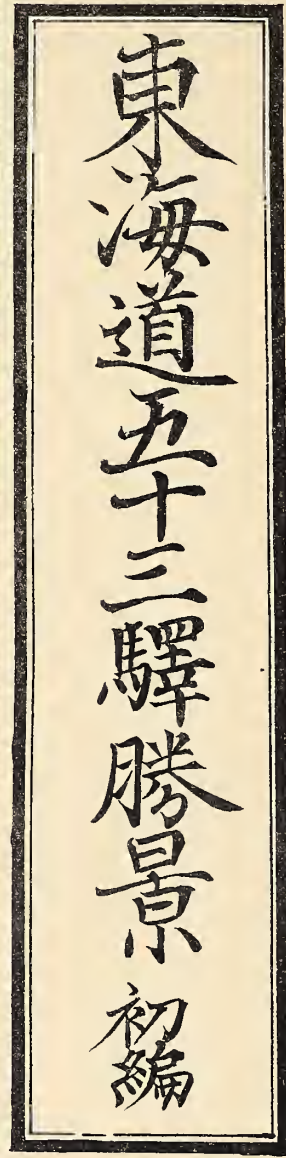 東海道五十三驛勝景 初編